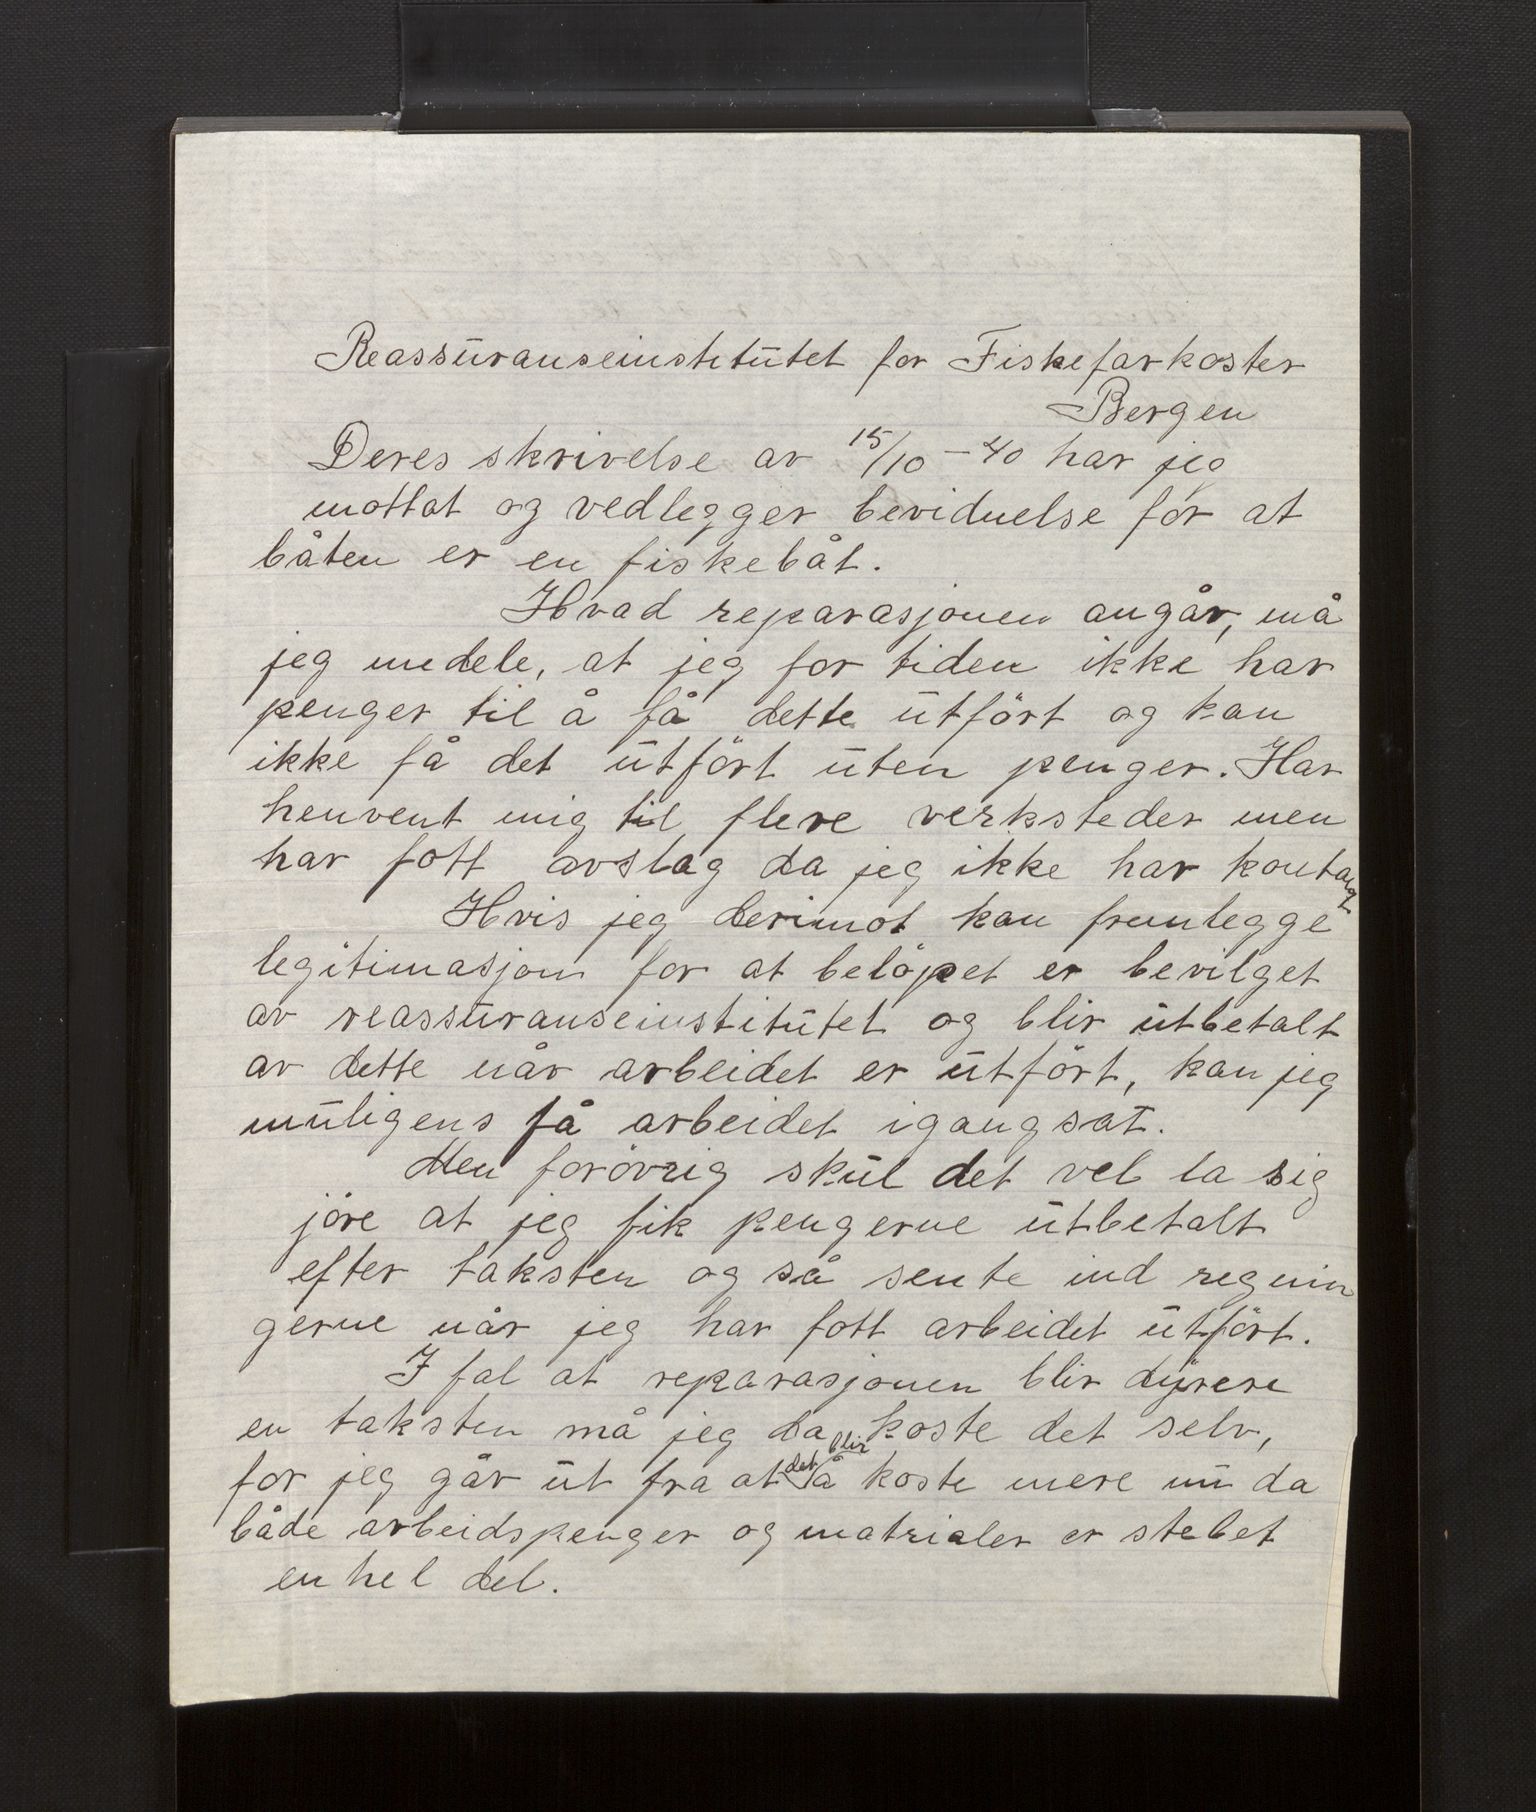 Reassuranseinstitutet for Fiskefarkoster
Bergen
Deres skrivelse av 15/10-40 har jeg
mottat og vedlegger beviduelse for at
båten er en fiskebåt.
Hvad reparasjonen angår, må
jeg medele, at jeg for tiden ikke har
penger til å få dette utfört og kan
ikke få det utfört uten penger. Har
henvent mig til flere verksteder men
har fott avslag da jeg ikke har kontang
Hvis jeg derimot kan fremlegge
legitimasjon for at belöpet er bevilget
av reassuranseinstitutet og blir utbetalt
av dette når arbeidet er utfört, kan jeg
muligens få arbeidet igangsat.
Men forövrig skul det vel la sig
jöre at jeg fik pengerne utbetalt
efter taksten og så sente ind regnin
gerne når jeg har fott arbeidet utfört.
I fal at reparasjonen blir dyrere
en taksten må jeg da koste det selv,
for jeg går ut fra at det blir å koste mere nu da
både arbeidspenger og matrialer er stebet
en hel del.